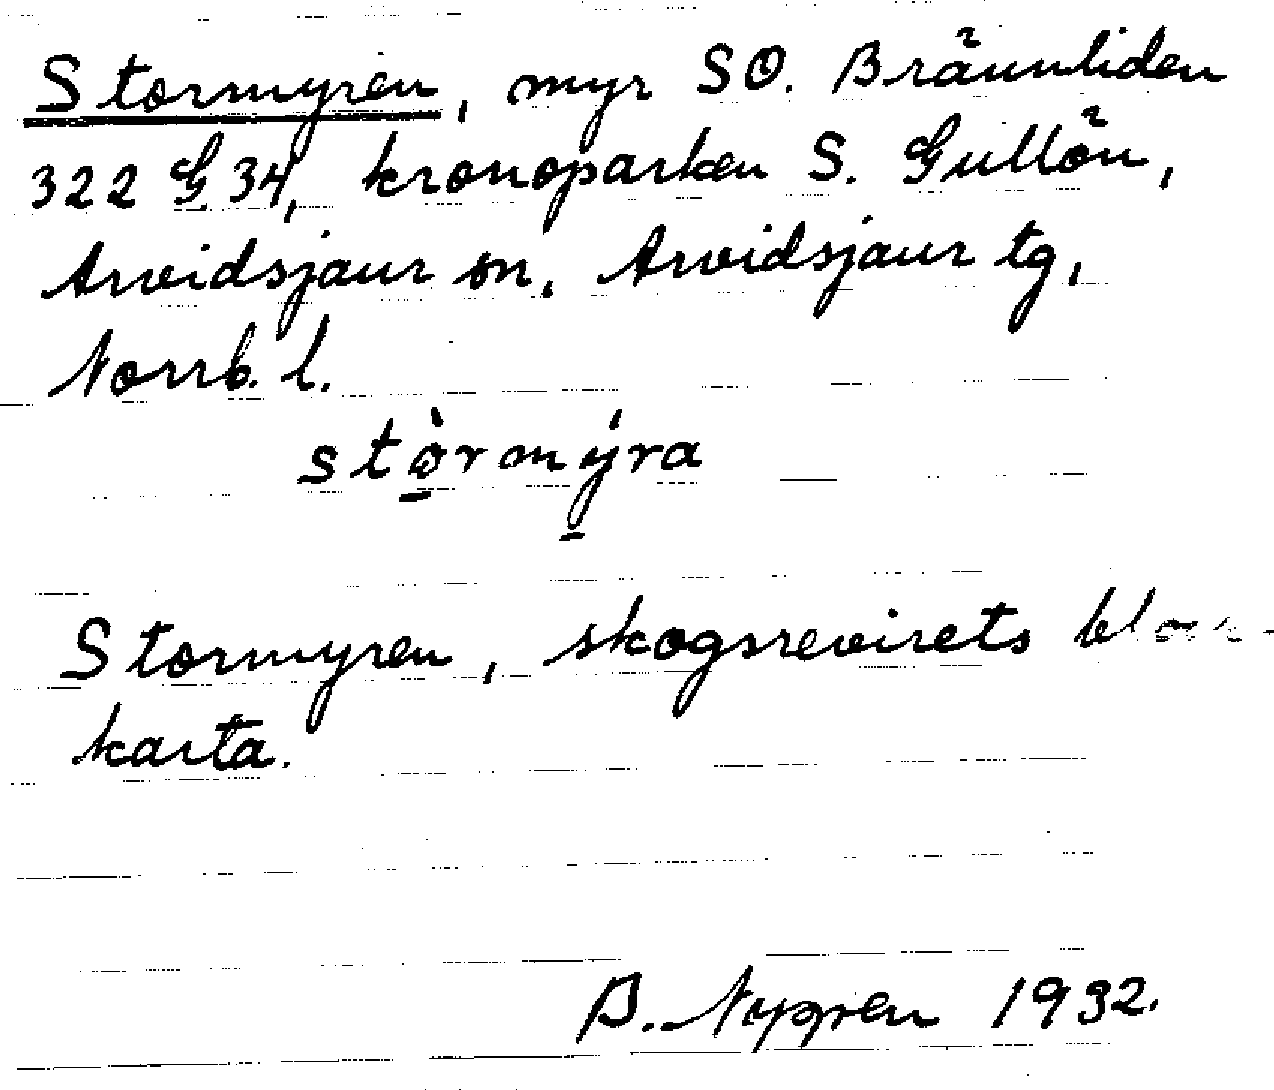 Stormyren, myr SO. Brännliden
322 G 34, kronoparken S. Gullön,
Arvidsjaur sn, Arvidsjaur tg,
Norrb. l.
stò̠rmý̠ra
Stormyren, skogsrevirets
karta.
B. Nygren 1932.